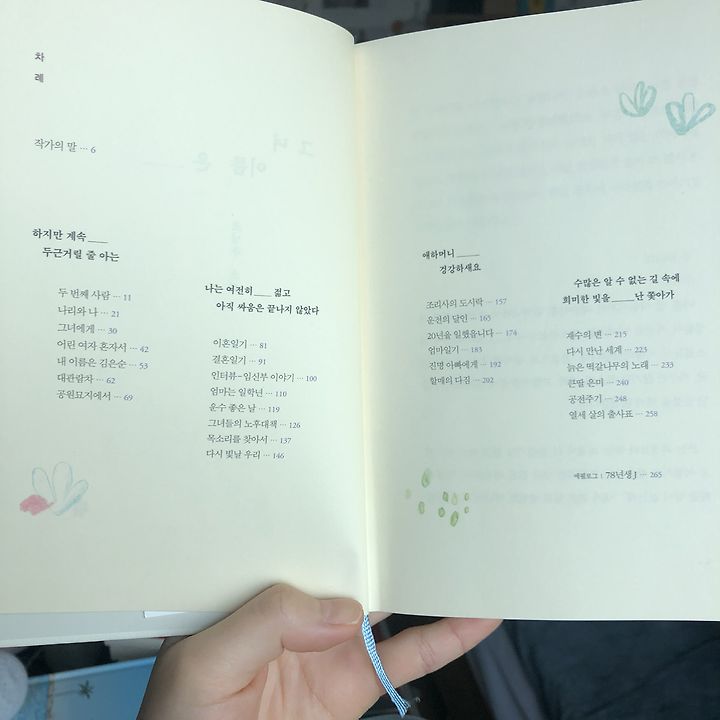 차
례
작가의 말 ··· 6
하지만 계속____
두근거릴 줄 아는
두 번째 사람 ··· 11
나리와 나 ··· 21
그녀에게 ··· 30
어린 여자 혼자서 ··· 42
내 이름은 김은순 ··· 53
대관람차 ··· 62
공원묘지에서 ··· 69
나는 여전히____젊고
아직 싸움은 끝나지 않았다
이혼일기 ··· 81
결혼일기 ··· 91
인터뷰-임신부 이야기 ··· 100
엄마는 일학년 ··· 110
운수 좋은 날 ··· 119
그녀들의 노후대책 ··· 126
목소리를 찾아서 ··· 137
다시 빛날 우리 ··· 146
애하머니____
겅강하새요
조리사의 도시락 ··· 157
운전의 달인 ··· 165
20년을 일했습니다 ··· 174
엄마일기 ··· 183
진명 아빠에게 ··· 192
할매의 다짐 ··· 202
수많은 알 수 없는 길 속에
희미한 빛을____난 쫓아가
재수의 변 ··· 215
다시 만난 세계 ··· 223
늙은 떡갈나무의 노래 ··· 233
큰딸 은미 ··· 240
공전주기 ··· 248
열세 살의 출사표 ··· 258
에필로그 | 78년생 J ··· 265